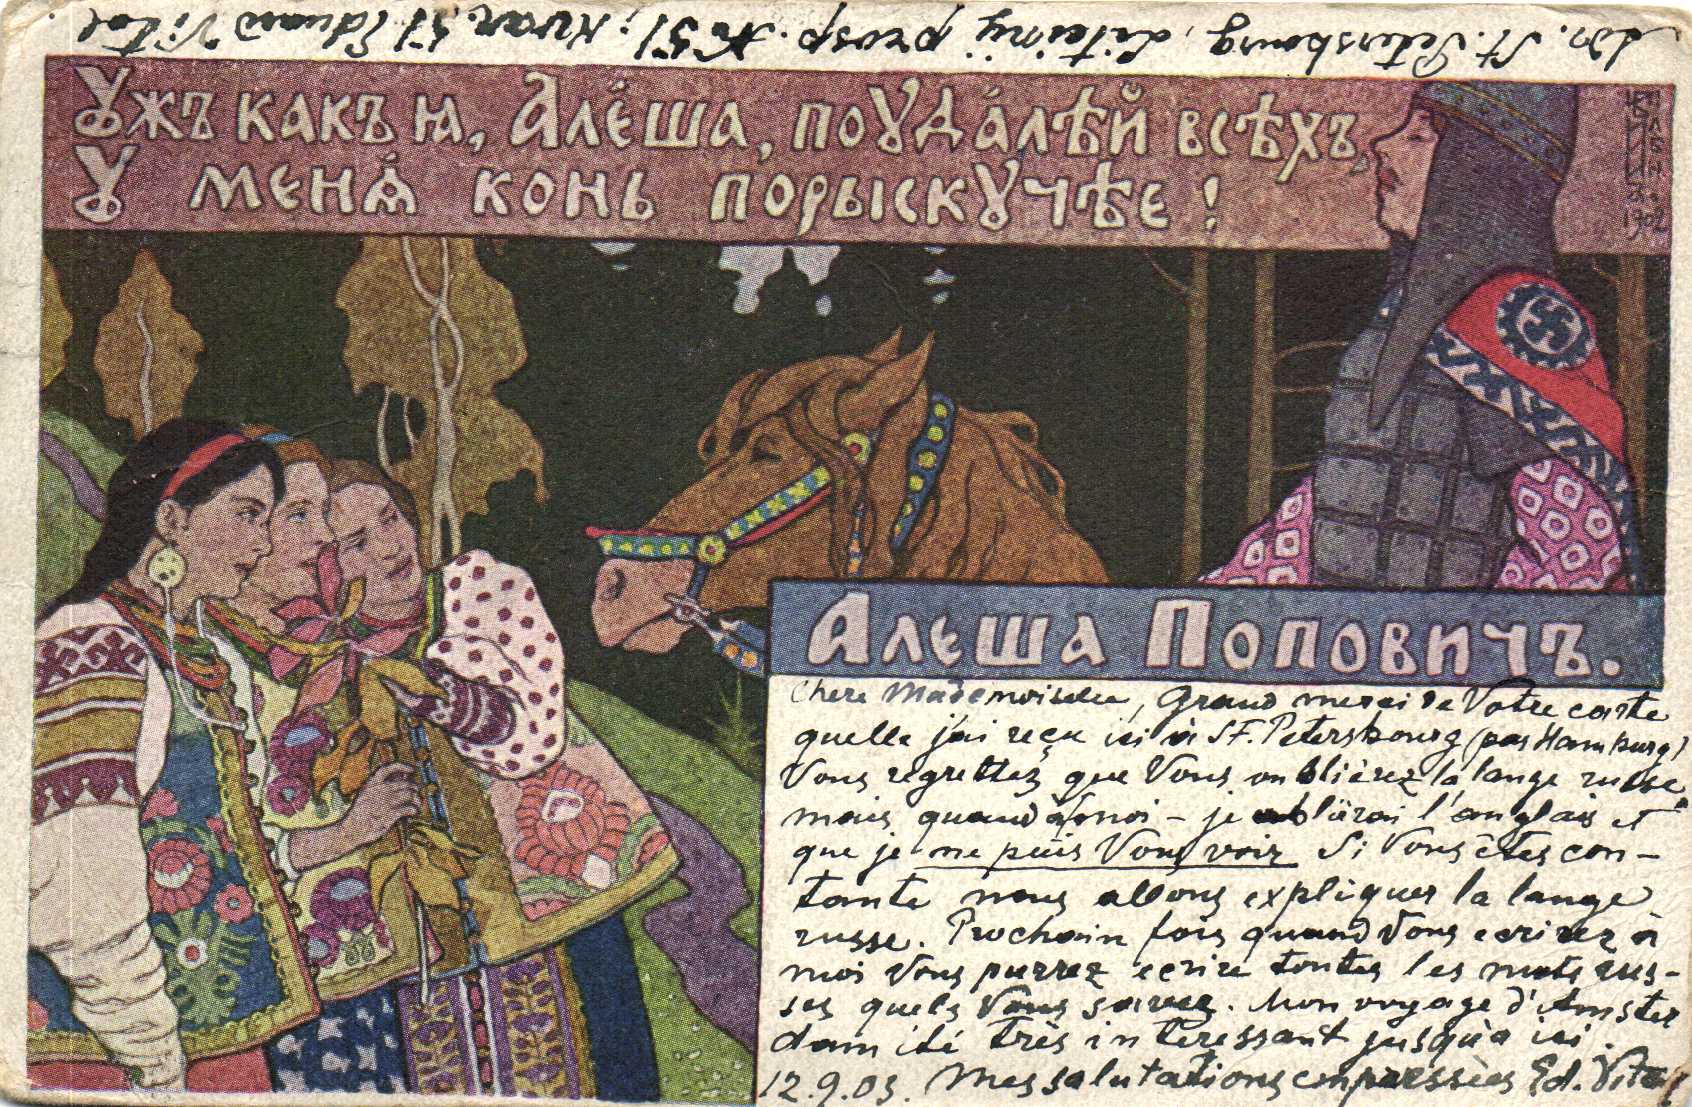 Adr. St. Petersbourg, Liteiny prosp. No 51, Kvar. 51 Eduard Vital
Ужъ какъ ꙗ, Алёша, поудáлѣй всѣхъ,
У менѧ́ конь порыскучѣе!
И. БИЛИБИН.
1902
Алеша Поповичъ.
Chere Mademoiselle, Grand merci de Votre carte
quelle j'ai reçu ici à St. Petersbourg (pas Hamburg)
Vous regrettez que Vous oublièrez la lange russe
mais quand à moi - je oublïerai l'anglais et
que je ne puis Vous voir Si Vous êtes con-
tante nous allons expliquer la lange
russe. Prochain fois quand Vous ecrirez à
moi Vous purrez ecrire toutes les mots rus-
ses quels Vous savez. Mon voyage d'Amster
dam été très interessant jusqu'a ici.
12.9.03. Mes salutations empressèes Ed. Vital